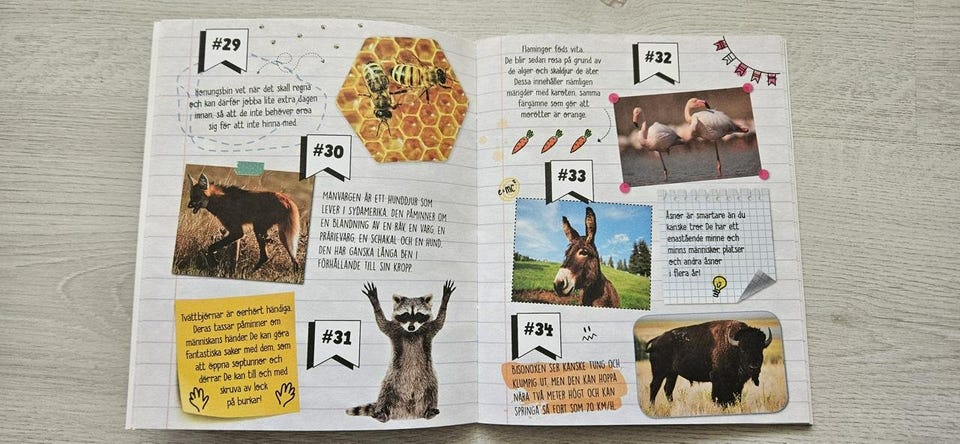 #29
Honungsbin vet när det skall regna
och kan därför jobba lite extra dagen
innan, så att de inte behöver oroa
sig för att inte hinna med.
#30
MANVARGEN ÄR ETT HUNDDJUR SOM
LEVER I SYDAMERIKA. DEN PÅMINNER OM
EN BLANDNING AV EN RÄV, EN VARG, EN
PRÄRIEVARG, EN SCHAKAL OCH EN HUND.
DEN HAR GANSKA LÅNGA BEN I
FÖRHÅLLANDE TILL SIN KROPP.
Tvättbjörnar är oerhört händiga.
Deras tassar påminner om
människans händer. De kan göra
fantastiska saker med dem, som
att öppna soptunnor och
dörrar. De kan till och med
skruva av lock
på burkar!
#31
Flamingor föds vita.
De blir sedan rosa på grund av
de alger och skaldjur de äter.
Dessa innehåller nämligen
mängder med karoten, samma
färgämne som gör att
morötter är orange.
#32
#33
e=mc²
Åsnor är smartare än du
kanske tror. De har ett
enastående minne och
minns människor, platser
och andra åsnor
i flera år!
#34
BISONOXEN SER KANSKE TUNG OCH
KLUMPIG UT, MEN DEN KAN HOPPA
NÄRA TVÅ METER HÖGT OCH KAN
SPRINGA SÅ FORT SOM 70 KM/H.